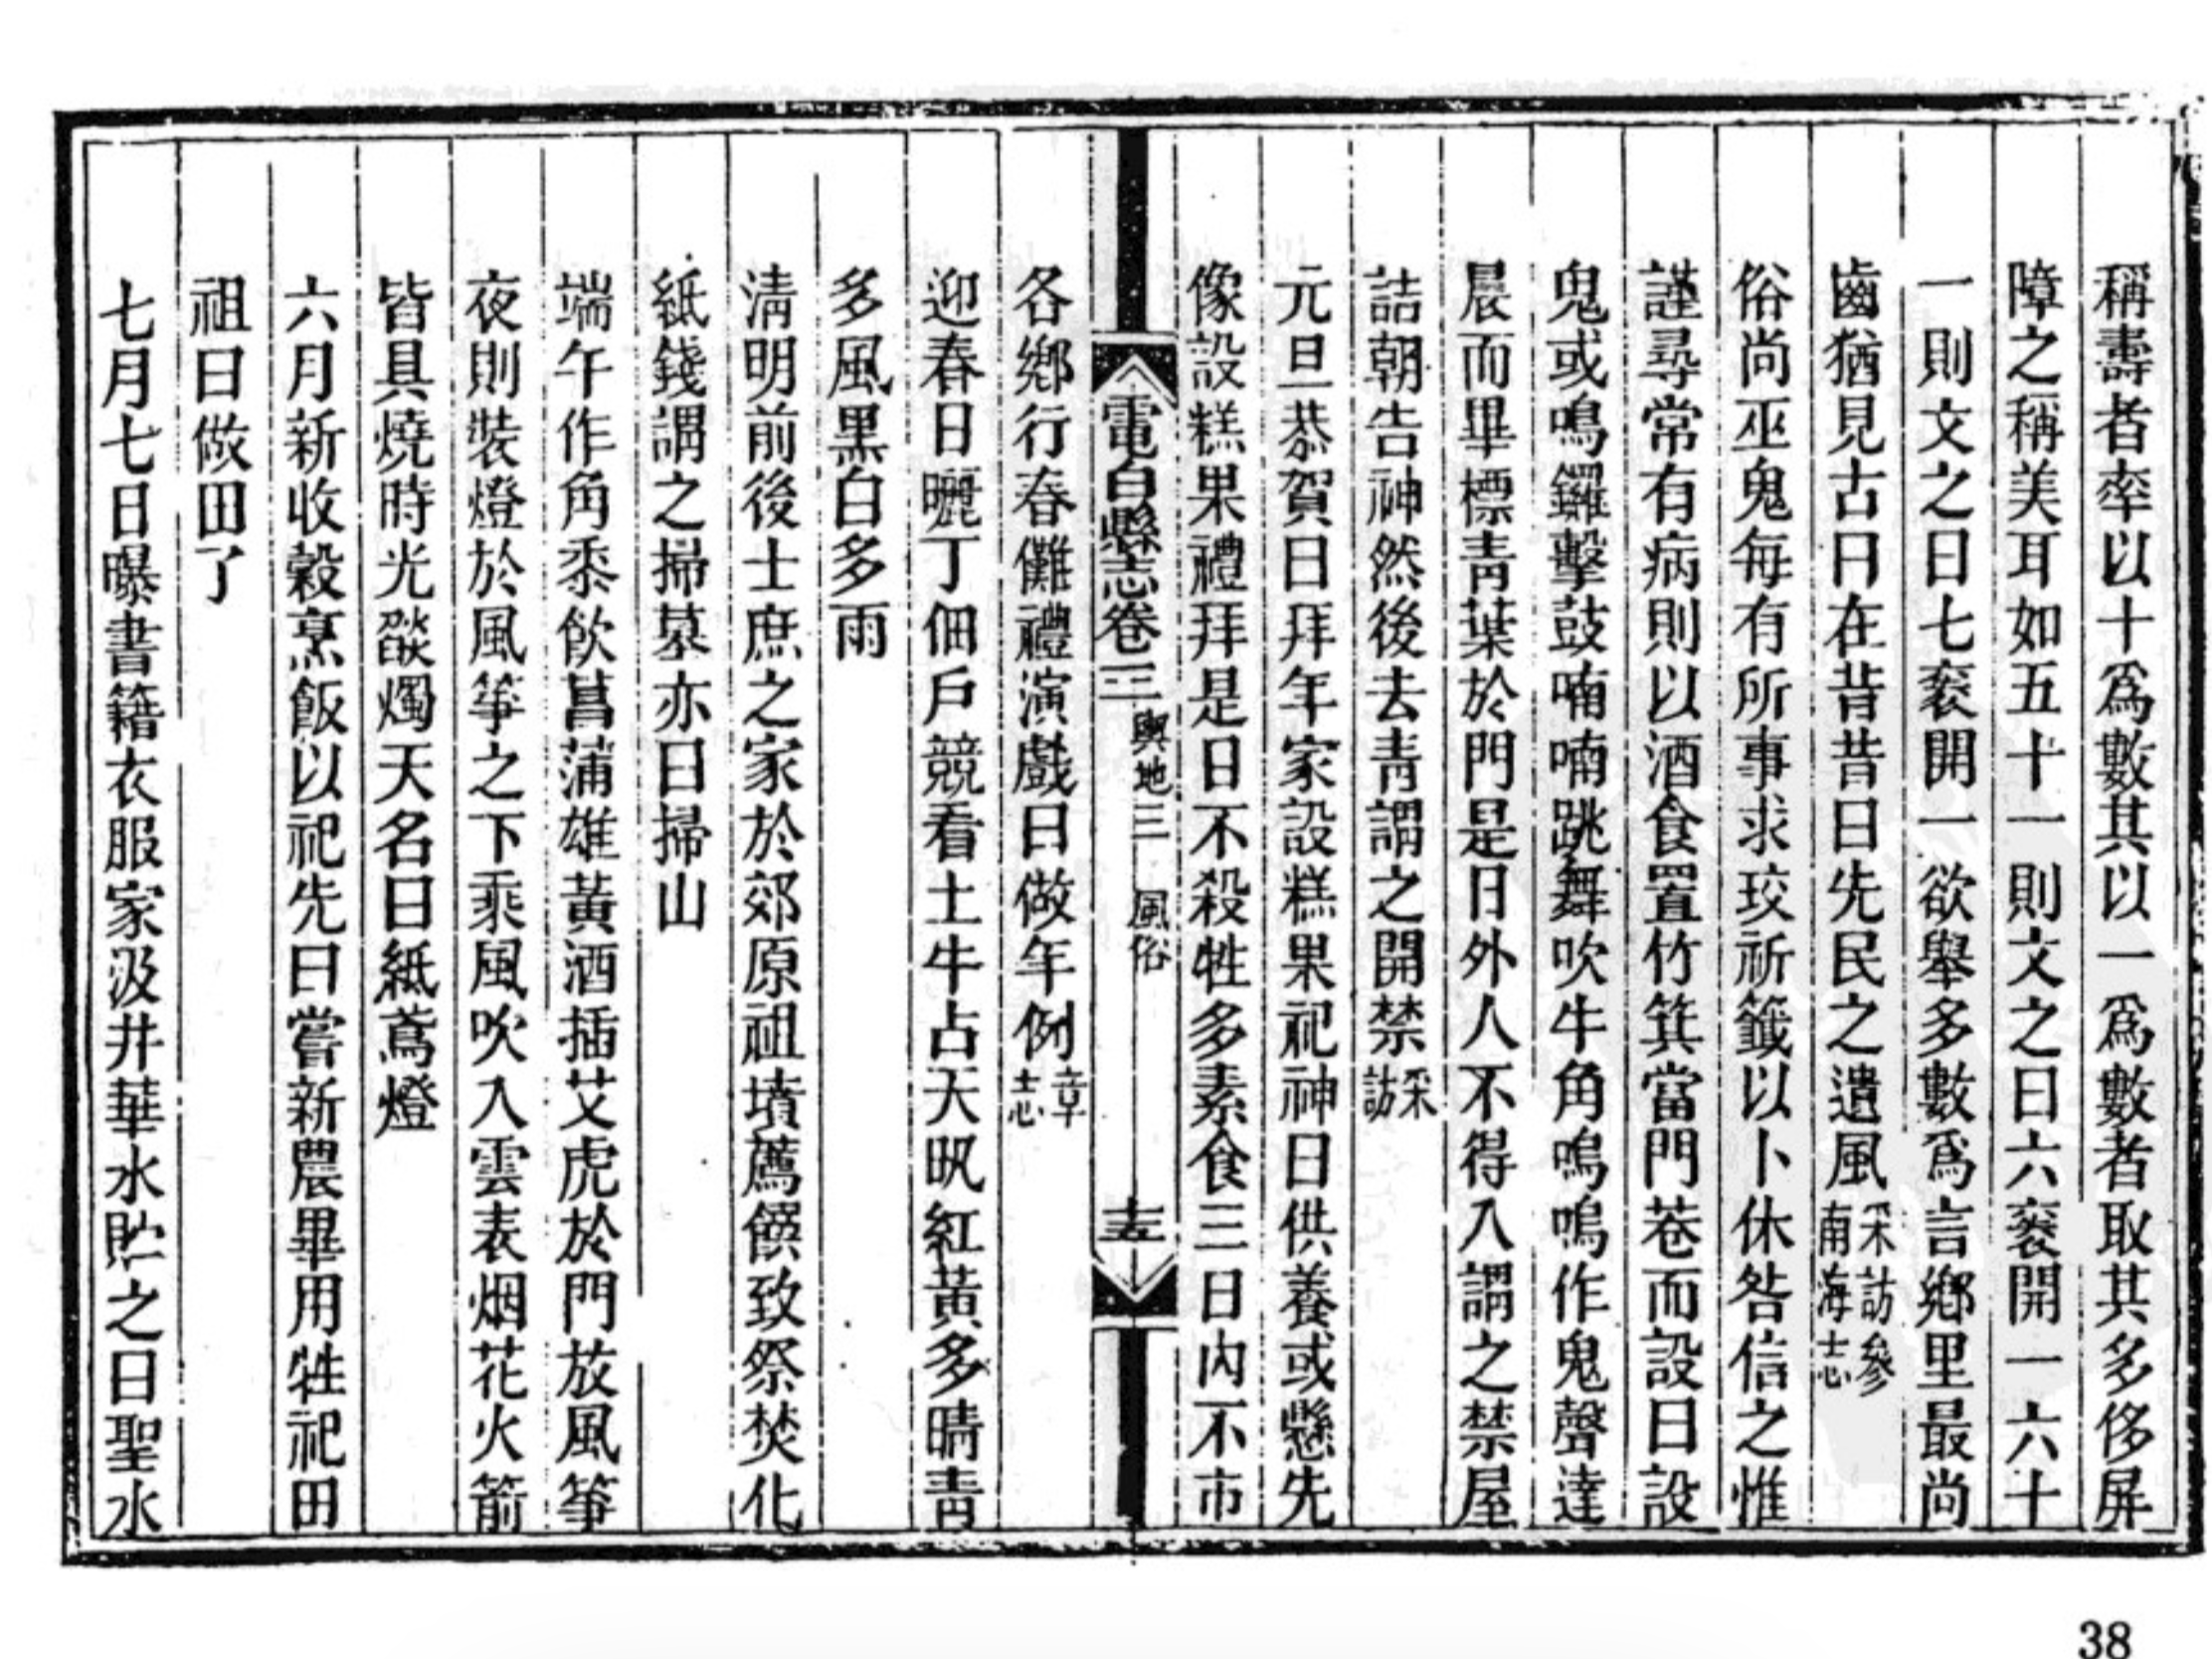 稱壽者率以十爲數其以一爲數者取其多侈屏
障之稱美耳如五十一則文之曰六袠開一六十
一則文之曰七袠開一欲舉多數爲言鄕里最尚
齒猶見古曰在昔昔曰先民之遺風采訪參南海志
俗尚巫鬼每有所事求珓祈籤以卜休咎信之惟
謹尋常有病則以酒食置竹箕當門巷而設曰設
鬼或鳴鑼擊鼓喃喃跳舞吹牛角嗚嗚作鬼聲達
晨而畢標靑葉於門是日外人不得入謂之禁屋
詰朝告神然後去靑謂之開禁采訪
元旦恭賀曰拜年家設糕果祀神曰供養或懸先
像設糕果禮拜是日不殺牲多素食三日內不市
電白縣志卷三 輿地三 風俗 十五
各鄕行春儺禮演戲曰做年例章志
迎春日曬丁佃戶競看土牛占天䫻紅黃多晴靑
多風黑白多雨
淸明前後士庶之家於郊原祖墳薦饌致祭焚化
紙錢謂之掃墓亦曰掃山
端午作角黍飮菖蒲雄黃酒插艾虎於門放風箏
夜則裝燈於風箏之下乘風吹入雲表烟花火箭
皆具燒時光燄燭天名曰紙鳶燈
六月新收穀烹飯以祀先曰嘗新農畢用牲祀田
祖曰做田了
七月七日曝書籍衣服家汲井華水貯之曰聖水
38